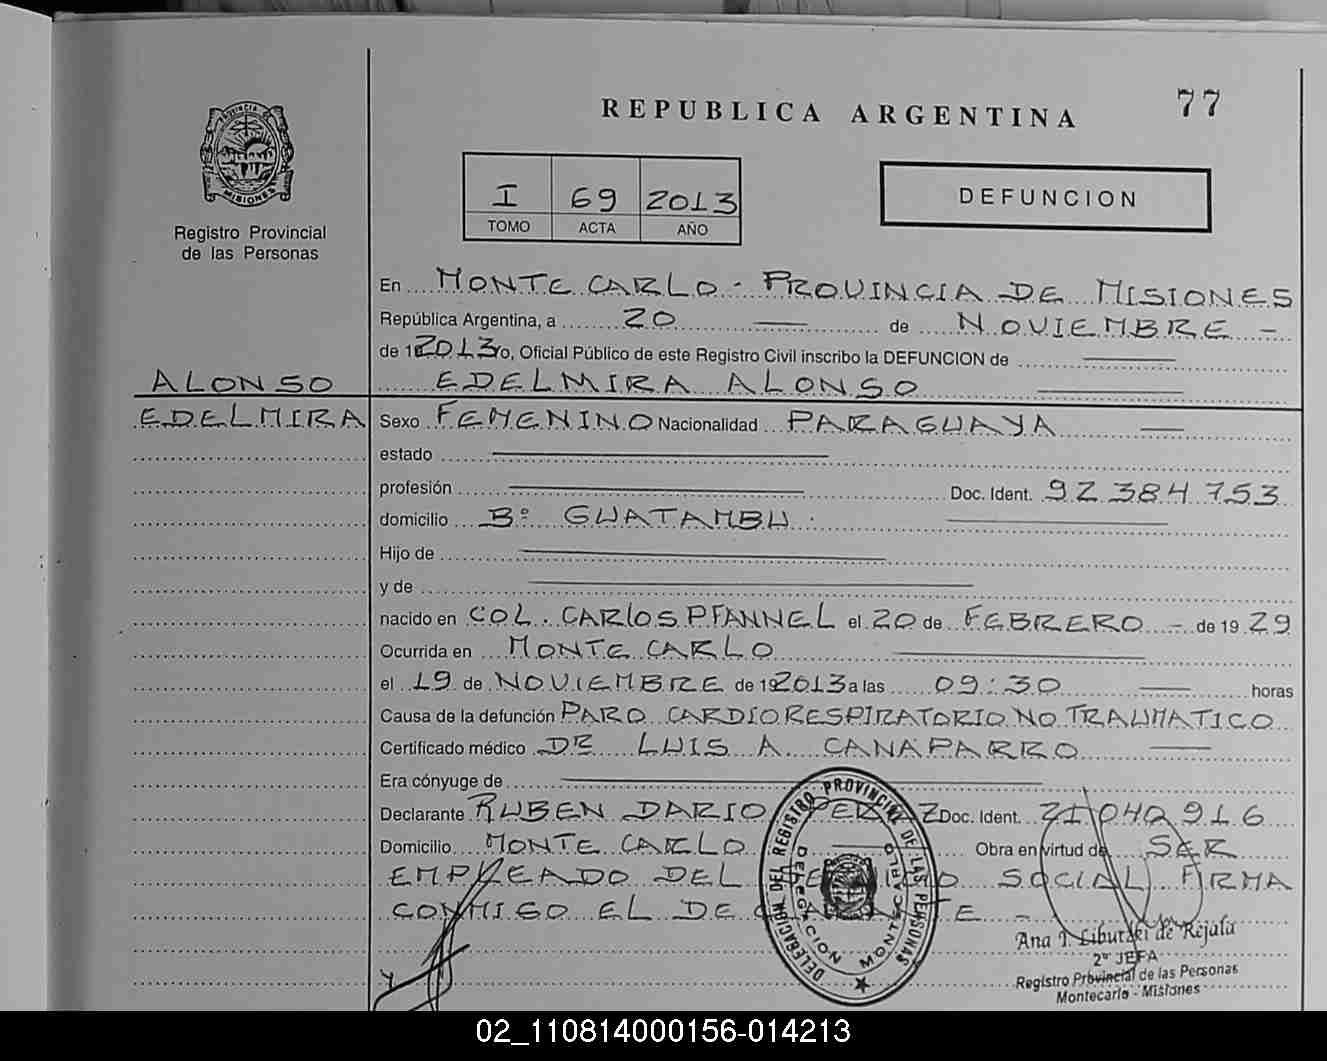 77
REPUBLICA ARGENTINA
PROVINCIA DE
MISIONES
Registro Provincial
de las Personas
I 69 2013
TOMO ACTA AÑO
DEFUNCION
En MONTE CARLO - PROVINCIA DE MISIONES
República Argentina, a 20 de NOVIEMBRE -
de 2013 yo, Oficial Público de este Registro Civil inscribo la DEFUNCION de
ALONSO EDELMIRA ALONSO
EDELMIRA Sexo FEMENINO Nacionalidad PARAGUAYA
estado
profesión Doc. Ident. 92 384 753
domicilio Bº GUATAMBU.
Hijo de
y de
nacido en COL. CARLOS PFANNEL el 20 de FEBRERO - de 19 29
Ocurrida en MONTE CARLO
el 19 de NOVIEMBRE de 2013 a las 09:30 horas
Causa de la defunción PARO CARDIORESPIRATORIO NO TRAUMATICO
Certificado médico DR LUIS A. CANAPARRO
Era cónyuge de
Declarante RUBEN DARIO Doc. Ident. 21 042 916
Domicilio MONTE CARLO Obra en virtud de SER
EMPLEADO DEL SOCIAL FIRMA
CONMIGO EL DECLARANTE -
DELEGACION DEL REGISTRO PROVINCIAL DE LAS PERSONAS
DELEGACION MONTECARLO
Ana I. de Rejala
2º JEFA
Registro Provincial de las Personas
Montecarlo - Misiones
02_110814000156-014213